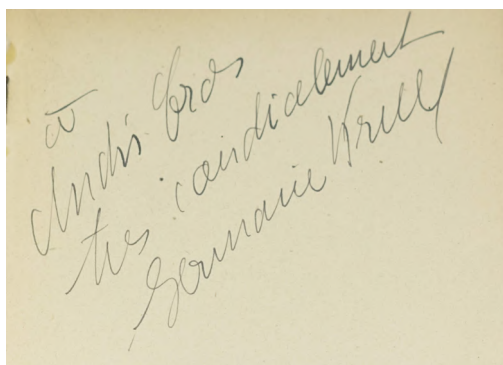 à
André Gros
très cordialement
Germaine Krull